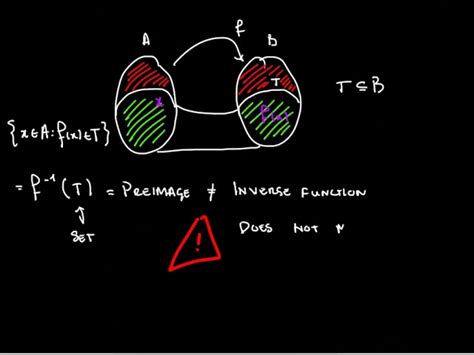 f
A B
T T ⊆ B
x f(x)
{x∈A: f(x)∈T}
= f⁻¹(T) = PREIMAGE ≠ INVERSE FUNCTION
SET
! DOES NOT